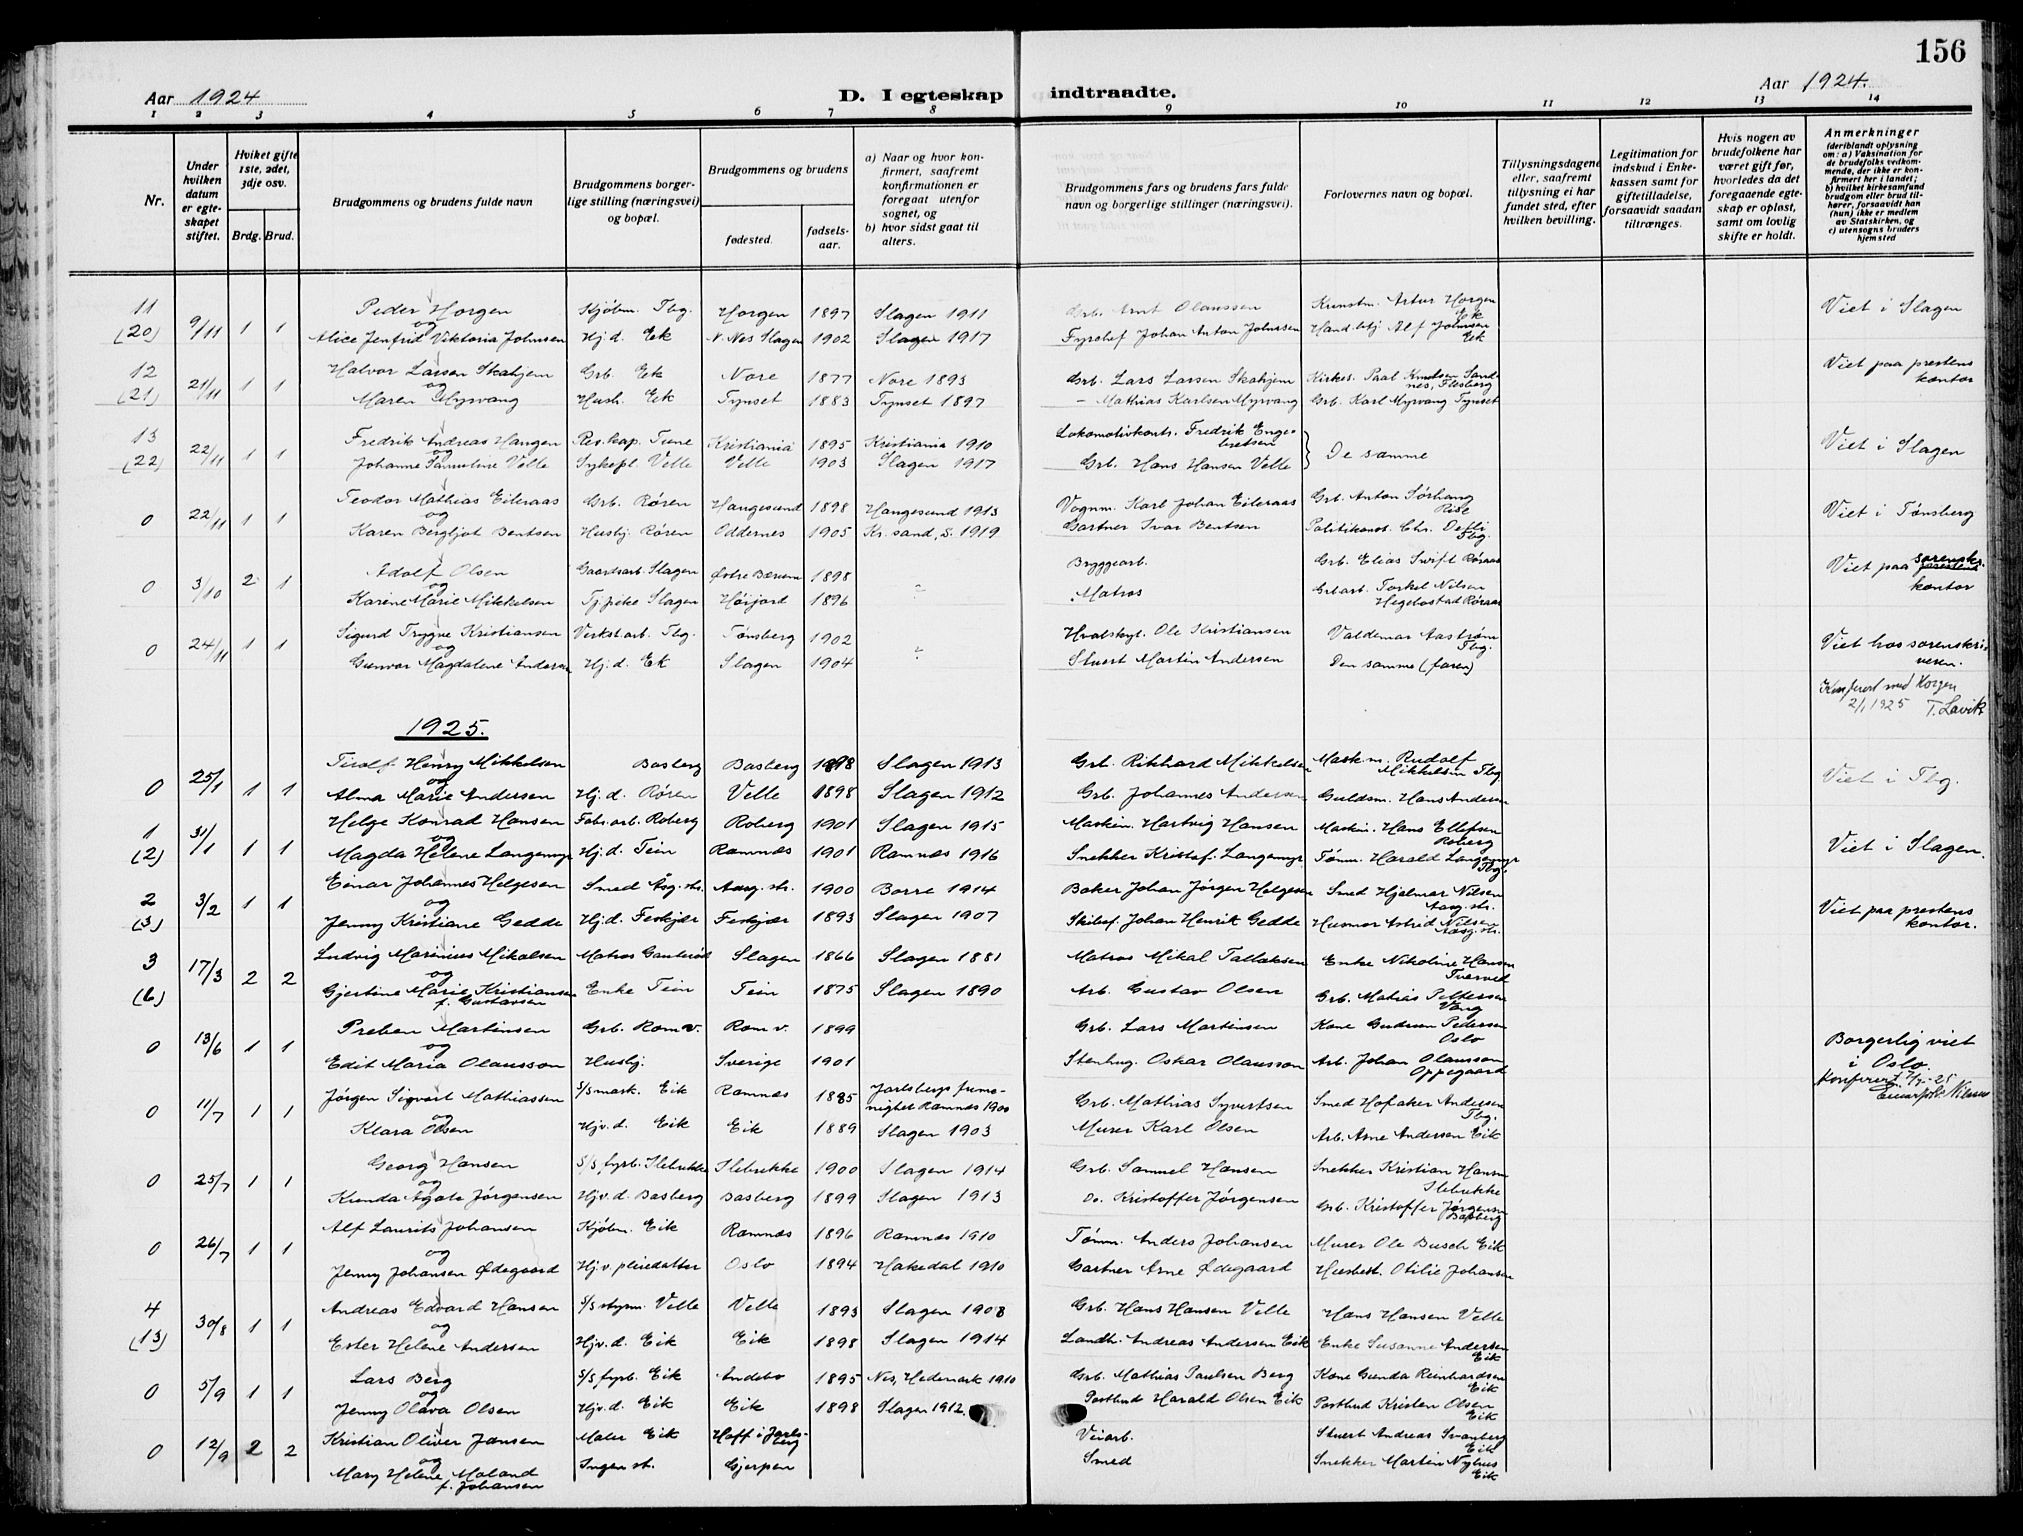 156
Aar 1924
D. I egteskap indtraadte.
Aar 1924.
1 2 3 4 5 6 7 8 9 10 11 12 13 14
Nr.
Under hvilken datum er egteskapet stiftet.
Hviket gifte 1ste, 2det, 3dje osv.
Brdg. Brud.
Brudgommens og brudens fulde navn
Brudgommens borgerlige stilling (næringsvei) og bopæl.
Brudgommens og brudens
fødested.
fødselsaar.
a) Naar og hvor konfirmert, saafremt konfirmationen er foregaat utenfor sognet, og
b) hvor sidst gaat til alters.
Brudgommens fars og brudens fars fulde navn og borgerlige stillinger (næringsvei).
Forlovernes navn og bopæl.
Tillysningsdagene eller, saafremt tillysning ei har fundet sted, efter hvilken bevilling.
Legitimation for indskud i Enkekassen samt for giftetilladelse, forsaavidt saadan tiltrænges.
Hvis nogen av brudefolkene har været gift før, hvorledes da det foregaaende egteskap er opløst, samt om lovlig skifte er holdt.
Anmerkninger (deriblandt oplysning om: a) Vaksination for de brudefolks vedkommende, der ikke er konfirmert her i landet; b) hvilket kirkesamfund brudgom eller brud tilhører, forsaavidt han (hun) ikke er medlem av Statskirken, og c) utensogns bruders hjemsted
11 (20) 9/11 1 1 Peder Horgen Kjøbm. Tbg. Horgen 1897 Slagen 1911 Grb. Arnt Olaussen Kunstm. Artur Horgen Ek Viet i Slagen
og
Alice Jenfrid Viktoria Johnsen Hj. d. Ek N. Nes Slagen 1902 Slagen 1917 Fyrchef Johan Anton Johnsen Hand.btj Alf Johnsen Eek
12 (21) 21/11 1 1 Halvor Larsen Skahjem Grb. Eek Nore 1877 Nore 1893 Grb. Lars Larsen Skahjem Kirkes. Paal Knudsen Sandnes, Flesberg Viet paa prestens kontor
og
Maren Myrvang Hush. Eek Tynset 1883 Tynset 1897 - Mathias Karlsen Myrvang Grb. Karl Myrvang Tynset
13 (22) 22/11 1 1 Fredrik Andreas Haugen Res. kap. Tune Kristiania 1895 Kristiania 1910 Lokomotivkonts. Fredrik Engebretsen De samme Viet i Slagen
og
Johanne Samueline Velle Sykepl. Velle Velle 1903 Slagen 1917 Grb. Hans Hansen Velle
0 22/11 1 1 Teodor Mathias Eileraas Grb. Røren Haugesund 1898 Haugesund 1913 Vognm. Karl Johan Eileraas Grb. Anton Sørhaug Rise Viet i Tønsberg
og
Karen Bergljot Bentsen Husbj. Røren Oddernes 1905 Kr.sand, S. 1919 Gartner Ivar Bentsen Politikonst. Chr. Defli Tbg.
0 3/10 2 1 Adolf Olsen Gaardsarb. Slagen Østre Bærum 1898 Bryggearb. Grb. Elias Swift Røraas Viet paa sorenskr. kontor
og
Karine Marie Mikkelsen Tj.pike Slagen Høijord 1896 Matros Grbarb. Torkel Nilsen Hegebostad Røraas
0 24/11 1 1 Sigurd Trygve Kristiansen Verkst.arb. Tbg. Tønsberg 1902 Hvalskyt. Ole Kristiansen Valdemar Aastrøm Tbg. Viet hos sorenskriveren.
og
Gunvor Magdalene Andersen Hj. d. Ek Slagen 1904 Stuert Martin Andersen Den samme (faren)
Konferert med Horgen 2/1 1925 T. Lavik
1925.
0 25/1 1 1 Tidolf Henry Mikkelsen Basberg Basberg 1898 Slagen 1913 Grb. Rikhard Mikkelsen Mask.m. Rudolf Mikkelsen Tbg Viet i Tbg.
og
Alma Marie Andersen Hj. d. Røren Velle 1898 Slagen 1912 Grb. Johannes Andersen Guldsm. Hans Andersen
1 (2) 31/1 1 1 Helge Konrad Hansen Fabr.arb. Roberg Roberg 1901 Slagen 1915 Maskin. Hartvig Hansen Maskin. Hans Ellefsen Roberg Viet i Slagen.
og
Magda Helene Langemyr Hj. d. Tein Ramnes 1901 Ramnes 1916 Snekker Kristof. Langemyr Tømm. Harald Langemyr Tbg.
2 (3) 3/2 1 1 Einar Johannes Helgesen Smed Åsg.str. Aasg. str. 1900 Borre 1914 Baker Johan Jørgen Helgesen Smed Hjalmar Nilsen Aasg. str. Viet paa prestens kontor.
og
Jenny Kristiane Gedde Hj. d. Feskjær Feskjær 1893 Slagen 1907 Skibsf. Johan Henrik Gedde Husmor Astrid Nilsen Aasg. str.
3 (6) 17/3 2 2 Ludvig Marinius Mikalsen Matros Gauterød Slagen 1866 Slagen 1881 Matros Mikal Tallaksen Enke Nikoline Hansen Tverved
og
Gjertine Marie Kristiansen f. Gustavsen Enke Tein Tein 1875 Slagen 1890 Arb. Gustav Olsen Grb. Matias Pettersen Vang
0 13/6 1 1 Preben Martinsen Grb. Ramv. Ram v. 1899 Grb. Lars Martinsen Kone Gudrun Pedersen Oslo Borgerlig viet i Oslo.
og
Edit Maria Olausson Husbj. Sverige 1901 Stenhug. Oskar Olausson Arb. Johan Olausson Oppegaard
Konferert 7/7-25
0 11/7 1 1 Jørgen Sigvart Mathiassen S/S mask. Eik Ramnes 1885 Jarlsbergs frimenighet Ramnes 1900 Grb. Mathias Syvertsen Smed Hofaker Andersen Tbg.
og
Klara Olsen Hjv. d. Eik Eik 1889 Slagen 1903 Murer Karl Olsen Arb. Arne Andersen Eik
0 25/7 1 1 Georg Hansen S/S fyrb. Ilebrekke Ilebrekke 1900 Slagen 1914 Grb. Samuel Hansen Snekker Kristian Hansen Ilebrekke
og
Kunda Agate Jørgensen Hjv. d. Basberg Basberg 1899 Slagen 1913 Do. Kristoffer Jørgensen Grb. Kristoffer Jørgensen Basberg
0 26/7 1 1 Alf Laurits Johansen Kjøbm. Eik Ramnes 1896 Ramnes 1910 Tømm. Anders Johansen Murer Ole Busch Eik
og
Jenny Johansen Ødegaard Hjv. pleiedatter Oslo 1894 Hakedal 1910 Gartner Arne Ødegaard Husbest. Otilie Johansen
4 (13) 30/8 1 1 Andreas Edvard Hansen S/S styrm. Velle Velle 1893 Slagen 1908 Grb. Hans Hansen Velle Hans Hansen Velle
og
Ester Helene Andersen Hjv. d. Eik Eik 1898 Slagen 1914 Landh. Andreas Andersen Eik Enke Susanne Andersen Eik
0 5/9 1 1 Lars Berg S/S fyrb. Eik Andebo 1895 Nes, Hedemark 1910 Grb. Mathias Paulsen Berg Kone Gunda Reinhardsen Eik
og
Jenny Olava Olsen Hjv. d. Eik Eik 1898 Slagen 1912. Postbud Harald Olsen Eik Postbud Kristen Olsen Eik
0 12/9 2 2 Kristian Oliver Jansen Maler Eik Hoff i Jarlsberg Veiarb. Stuert Andreas Svanberg Eik
og
Mary Helene Moland f. Johansen Ingen st. Gjerpen Smed Snekker Martin Nyhus Eik